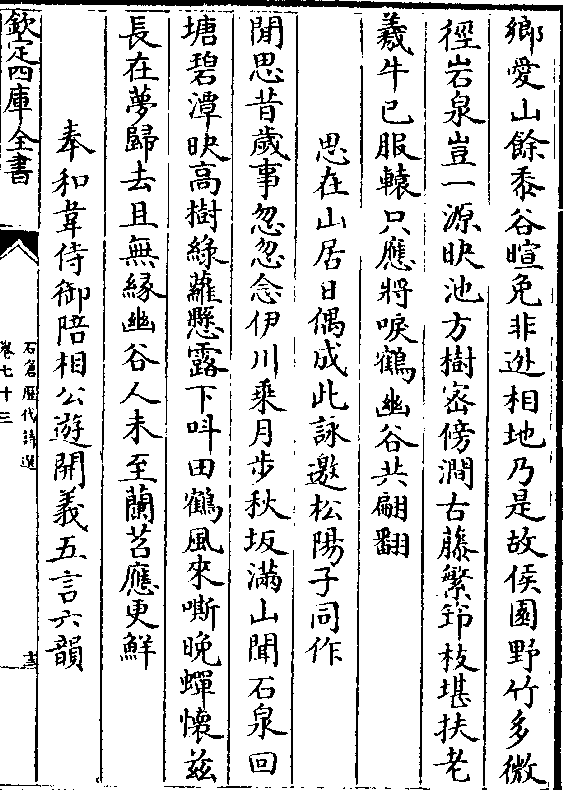 鄉愛山餘黍谷暄免非逊相地乃是故侯園野竹多微
徑岩泉豈一源映池方樹密傍澗古藤繁笻枝堪扶老
羲牛已服轅只應將唳鶴幽谷共翩翻
思在山居日偶成此詠邀松陽子同作
閒思昔歲事忽忽念伊川乘月步秋坂滿山聞石泉回
塘碧潭映高樹綠蘿懸露下呌田鶴風來嘶晚蟬懷茲
長在夢歸去且無緣幽谷人未至蘭苕應更鮮
奉和韋侍御陪相公遊開義五言六韻
欽定四庫全書
石倉歷代詩選
卷七十三